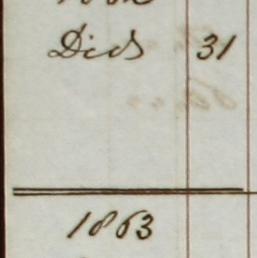 Died 31
1863